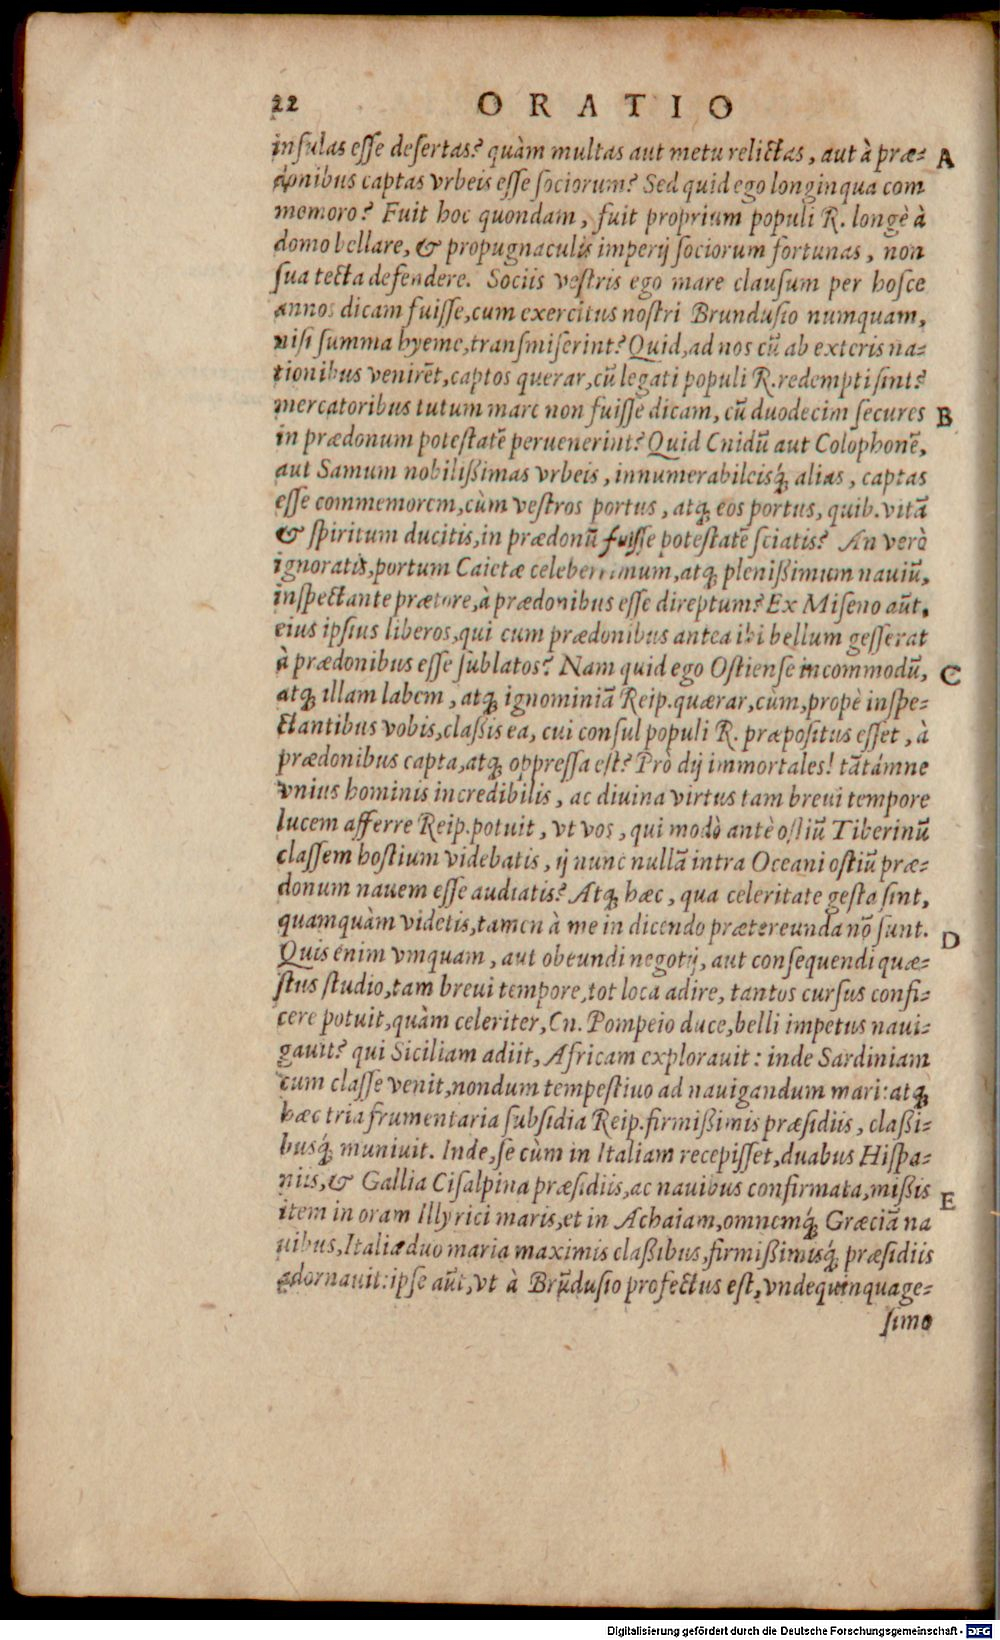 22 ORATIO
insulas esse desertas? quàm multas aut metu relictas, aut à præ- A
donibus captas vrbeis esse sociorum? Sed quid ego longinqua com
memoro? Fuit hoc quondam, fuit proprium populi R. longè à
domo bellare, & propugnaculis imperij sociorum fortunas, non
sua tecta defendere. Sociis vestris ego mare clausum per hosce
annos dicam fuisse, cum exercitus nostri Brundusio numquam,
nisi summa hyeme, transmiserint? Quid, ad nos cū ab exteris na-
tionibus venirēt, captos querar, cū legati populi R. redempti sint?
mercatoribus tutum mare non fuisse dicam, cū duodecim secures B
in prædonum potestatē peruenerint? Quid Cnidū aut Colophonē,
aut Samum nobilißimas vrbeis, innumerabileisq́; alias, captas
esse commemorem, cùm vestros portus, atq; eos portus, quib. vitā
& spiritum ducitis, in prædonū fuisse potestatē sciatis? An verò
ignoratis, portum Caietæ celeberrimum, atq; plenißimum nauiū,
inspectante prætore, à prædonibus esse direptum? Ex Miseno aūt,
eius ipsius liberos, qui cum prædonibus antea ibi bellum gesserat
à prædonibus esse sublatos? Nam quid ego Ostiense incommodū, C
atq; illam labem, atq; ignominiā Reip. quærar, cùm, propè inspe-
ctantibus vobis, claßis ea, cui consul populi R. præpositus esset, à
prædonibus capta, atq; oppressa est? Prò dij immortales! tātámne
vnius hominis incredibilis, ac diuina virtus tam breui tempore
lucem afferre Reip. potuit, vt vos, qui modò antè ostiū Tiberinū
classem hostium videbatis, ij nunc nullā intra Oceani ostiū præ-
donum nauem esse audiatis? Atq; hæc, qua celeritate gesta sint,
quamquàm videtis, tamen à me in dicendo prætereunda nō sunt. D
Quis enim vmquam, aut obeundi negotij, aut consequendi quæ-
stus studio, tam breui tempore, tot loca adire, tantos cursus confi-
cere potuit, quàm celeriter, Cn. Pompeio duce, belli impetus naui-
gauit? qui Siciliam adiit, Africam explorauit: inde Sardiniam
cum classe venit, nondum tempestiuo ad nauigandum mari: atq;
hæc tria frumentaria subsidia Reip. firmißimis præsidiis, claßi-
busq́; muniuit. Inde, se cùm in Italiam recepisset, duabus Hispa-
niis, & Gallia Cisalpina præsidiis, ac nauibus confirmata, mißis E
item in oram Illyrici maris, et in Achaiam, omnemq́; Græciā na
uibus, Italiæ duo maria maximis claßibus, firmißimisq́; præsidiis
adornauit: ipse aūt, vt à Brūdusio profectus est, vndequinquage-
simo
Digitalisierung gefördert durch die Deutsche Forschungsgemeinschaft - DFG